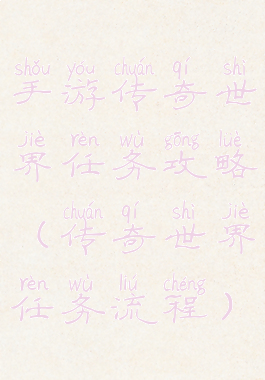 shǒu yóu chuán qí shì
手游传奇世
jiè rèn wù gōng lüè
界任务攻略
chuán qí shì jiè
（传奇世界
rèn wù liú chéng
任务流程）